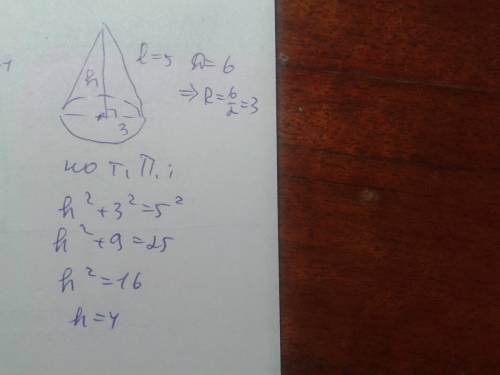 h
3
l=5 D=6
⇒ R=6/2=3
по т. П.:
h²+3²=5²
h²+9=25
h²=16
h=4